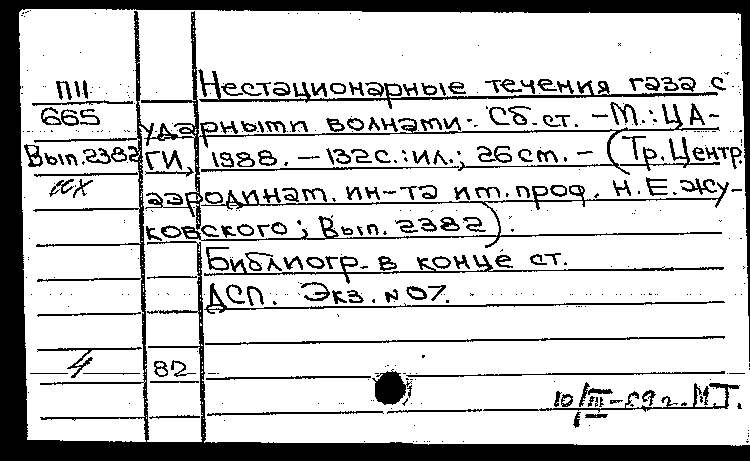 ПII Нестационарные течения газа с
665 ударными волнами. Сб. ст. – М.: ЦА-
Вып. 2382 ГИ, 1988. – 132 с.: ил.; 26 см. – (Тр. Центр.
аэродинам. ин-та им. проф. Н. Е. Жу-
ковского; Вып. 2382).
Библиогр. в конце ст.
ДСП. Экз. № 07.
4 82
10/III-89 г. М.Т.